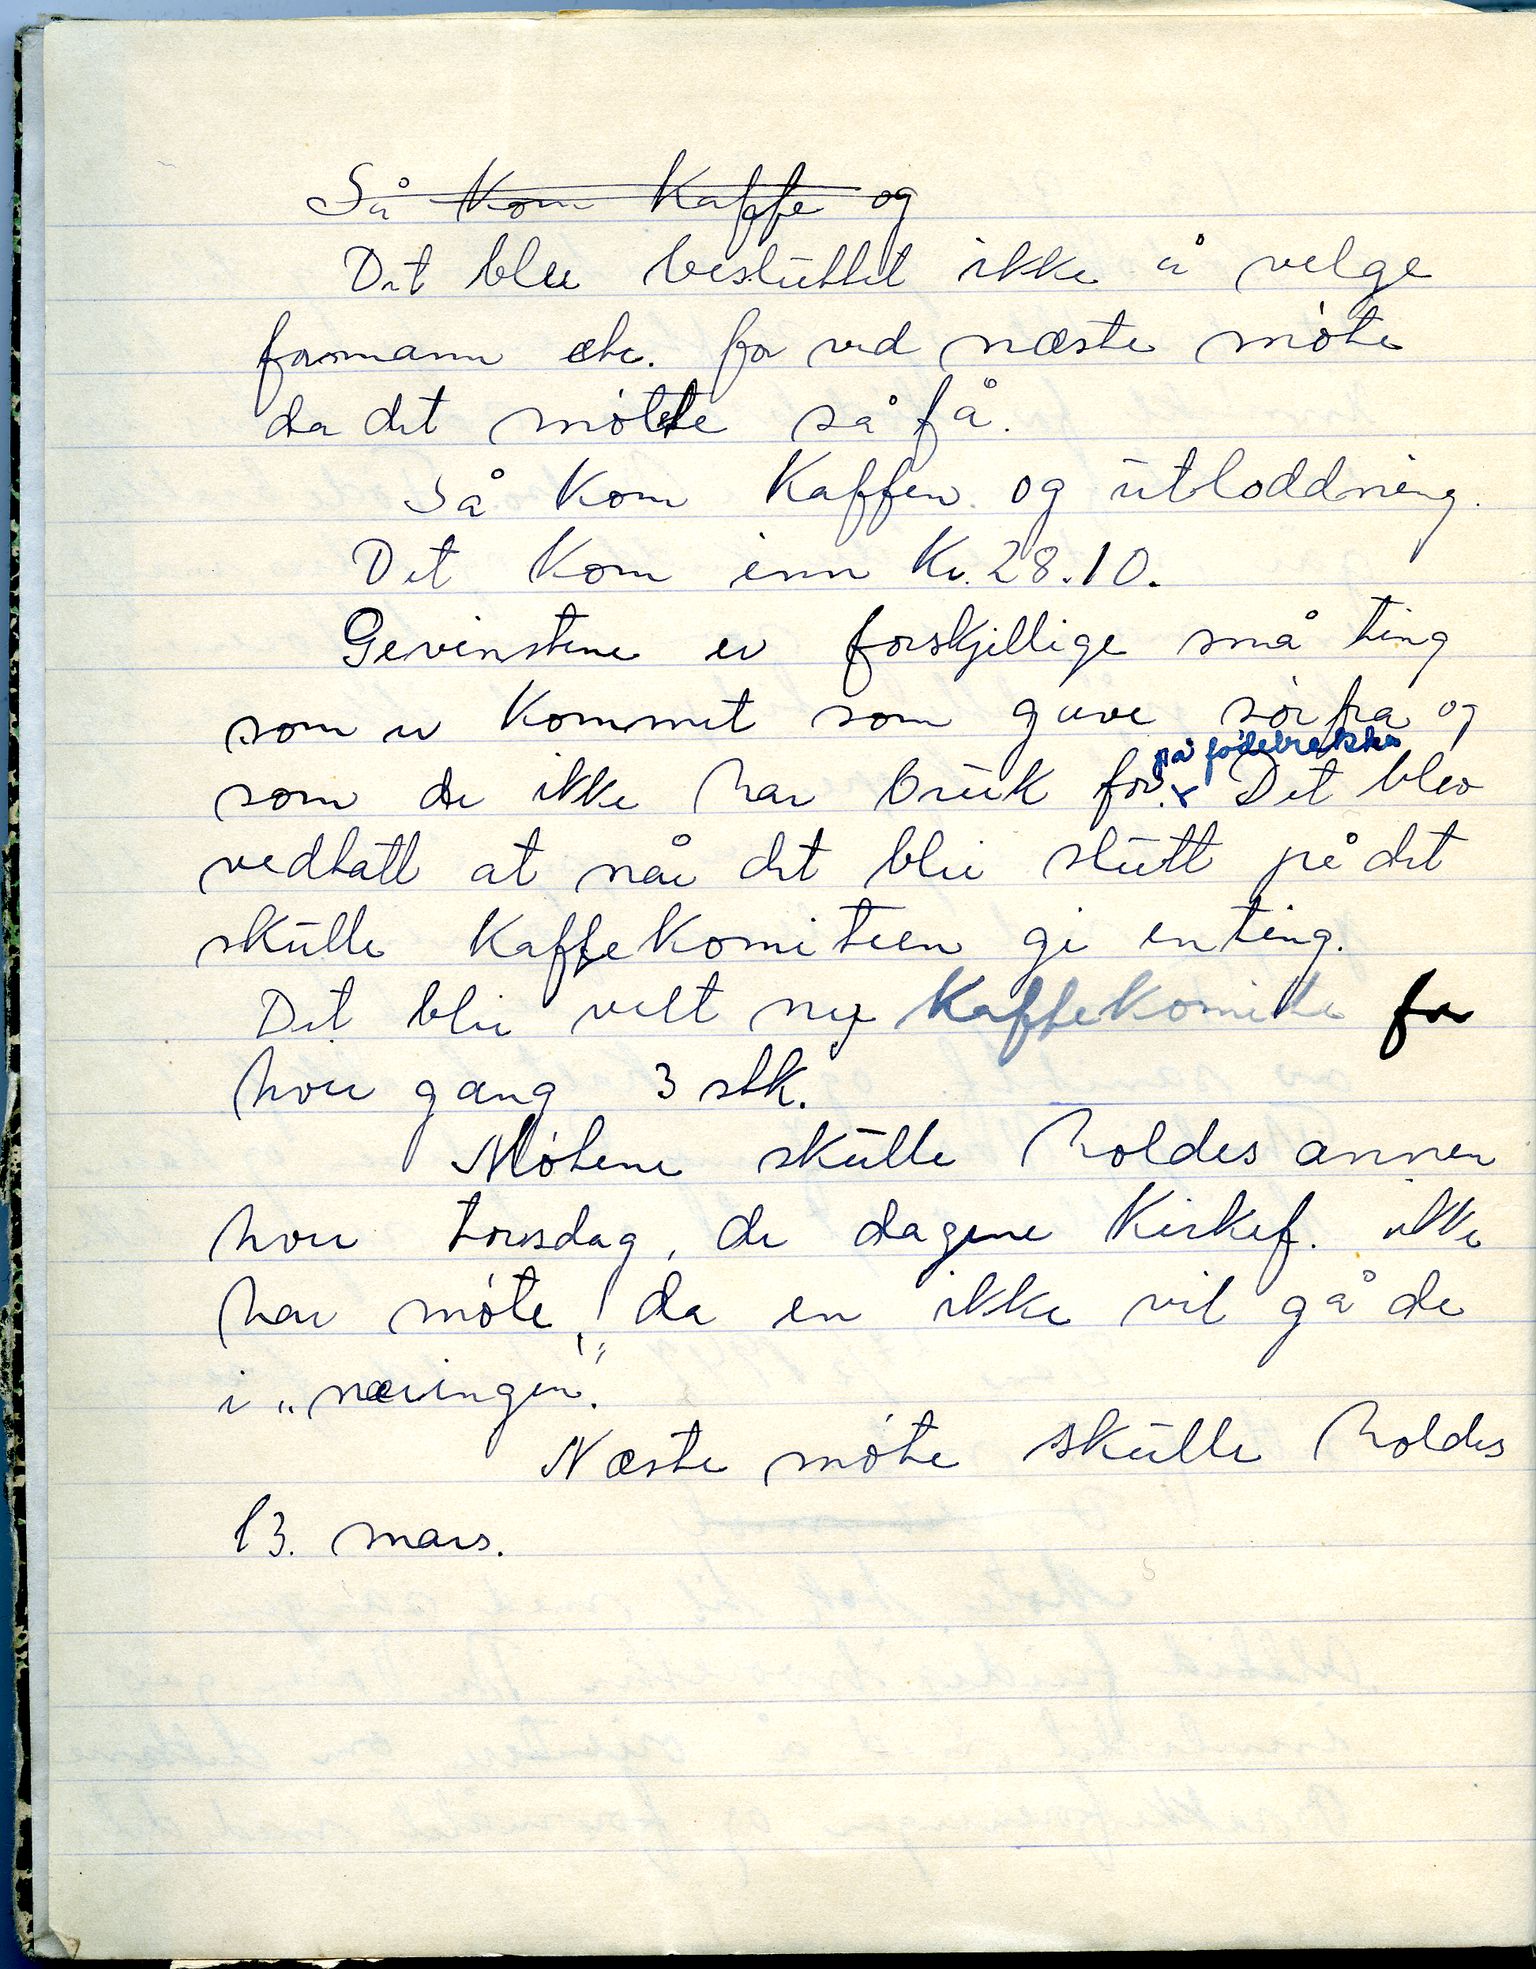 Så kom kaffe og
Det blei besluttet ikke å velge
formann etc. før ved næste møte
da det møtte så få.
Så kom kaffen og utloddning.
Det kom inn Kr. 28.10.
Gevinstene er forskjellige små ting
som er kommet som gave sørfra og
på fødebrakka
som de ikke har bruk for. x Det blev
vedtatt at når det blir slutt på det
skulle kaffekomiteen gi en ting.
Det blir velt ny kaffekomite for
hver gang 3 stk.
Møtene skulle holdes annen
hver torsdag, de dagene Kirkef. ikke
har møte, da en ikke vil gå de
i „næringen".
Næste møte skulle holdes
13. mars.